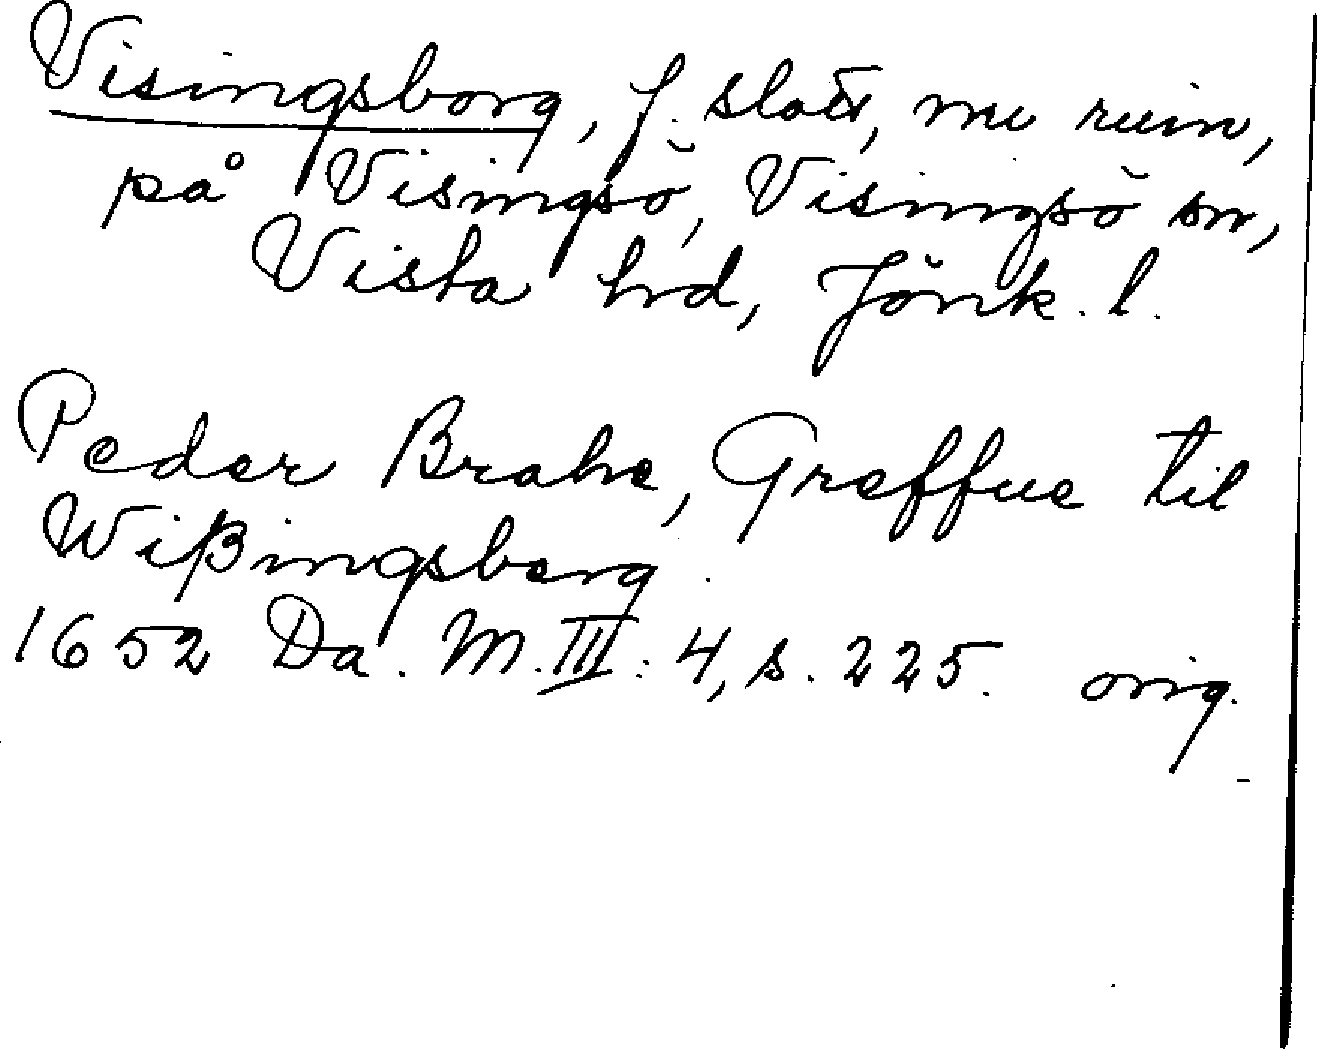 Visingsborg, f. slott, nu ruin,
på Visingsö, Visingsö sn,
Vista hd, Jönk. l.
Peder Brahe, Greffue til
Wißingsborg.
1652 Da. M. III: 4, s. 225. orig.